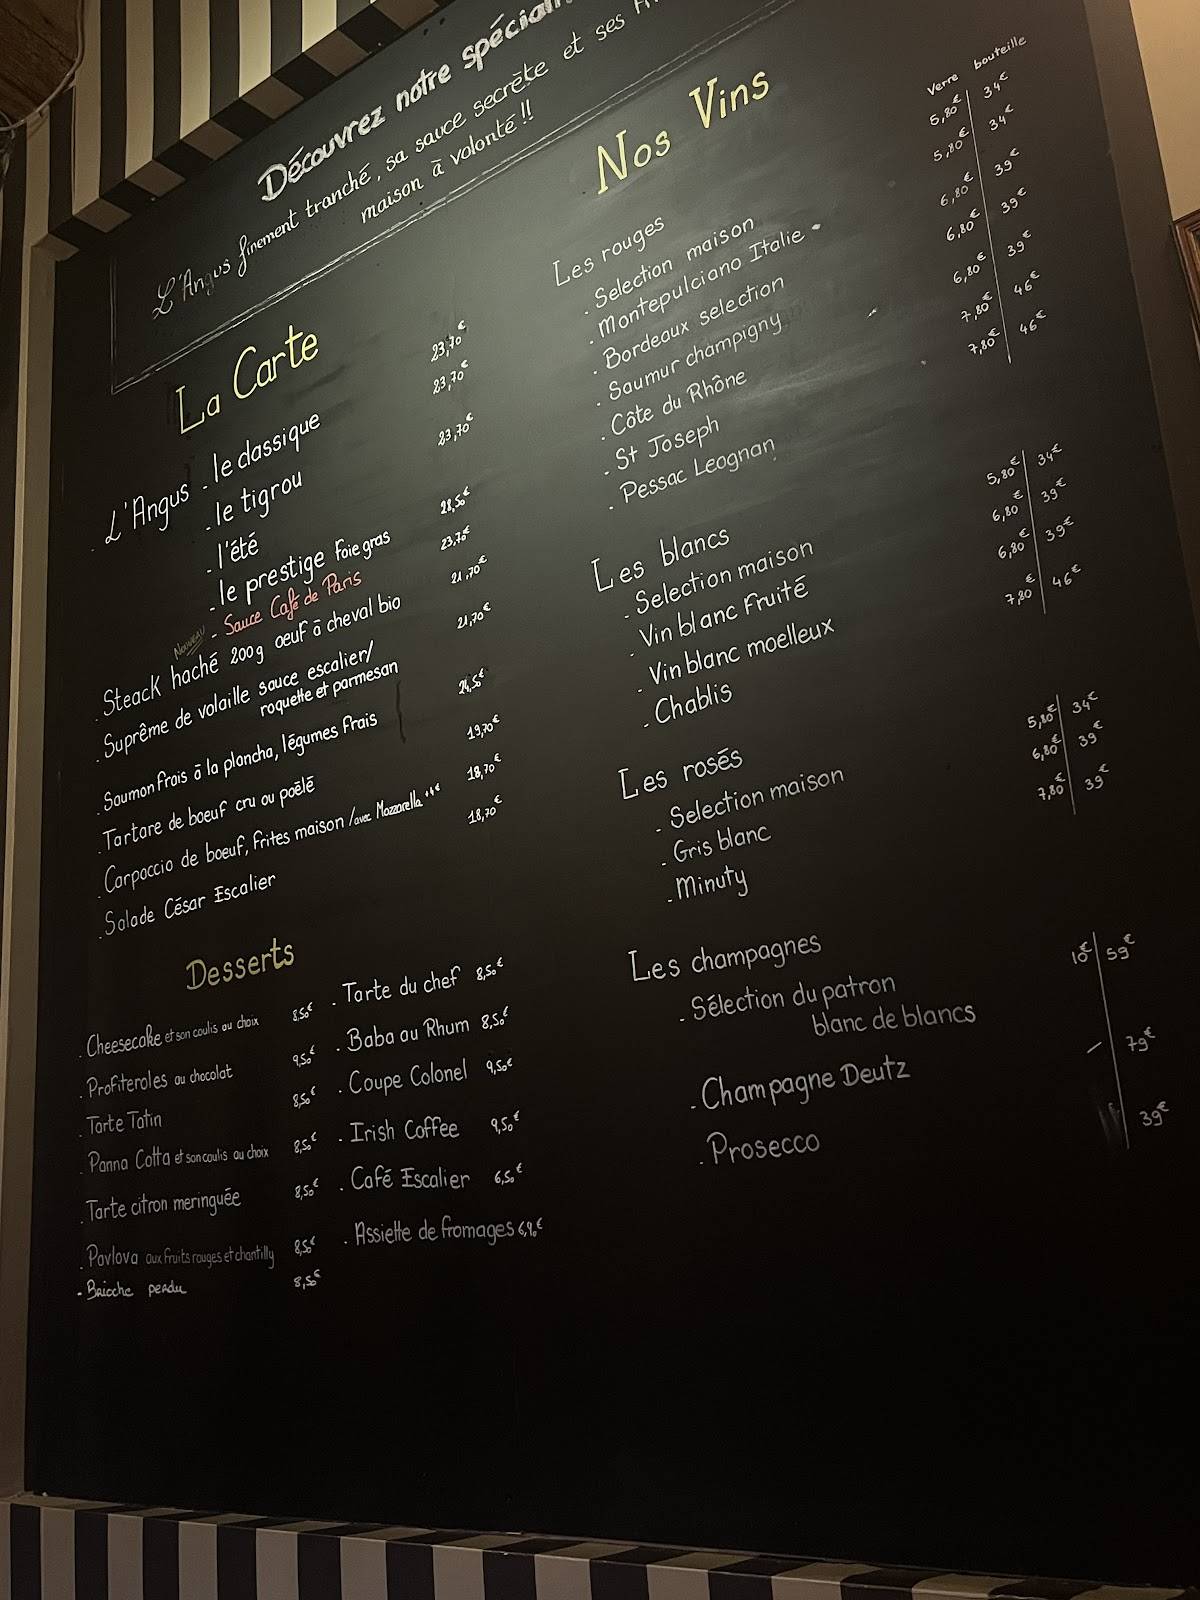 Découvrez notre
L'Angus finement tranché, sa sauce secrète et ses
maison à volonté !!
La Carte
. L'Angus . le classique 23,70€
. le tigrou 23,70€
. l'été 23,70€
. le prestige Foie gras 28,50€
Nouveau - Sauce Café de Paris 23,70€
. Steack haché 200g oeuf à cheval bio 21,70€
. Suprême de volaille sauce escalier/ 21,70€
roquette et parmesan
. Saumon frais à la plancha, légumes frais 24,50€
. Tartare de boeuf cru ou poêlé 19,70€
. Carpaccio de boeuf, frites maison /avec Mozzarella 18,70€
. Salade César Escalier 18,70€
Desserts
. Cheesecake et son coulis au choix 8,50€
. Profiteroles au chocolat 9,50€
. Tarte Tatin 8,50€
. Panna Cotta et son coulis au choix 8,50€
. Tarte citron meringuée 8,50€
. Pavlova aux fruits rouges et chantilly 8,50€
- Brioche perdu 8,50€
. Tarte du chef 8,50€
. Baba au Rhum 8,50€
. Coupe Colonel 9,50€
. Irish Coffee 9,50€
. Café Escalier 6,50€
. Assiette de fromages 6,90€
Nos Vins
Verre bouteille
Les rouges
. Selection maison 5,80€ 34€
. Montepulciano Italie 5,80€ 34€
. Bordeaux selection 6,80€ 39€
. Saumur champigny 6,80€ 39€
. Côte du Rhône 6,80€ 39€
. St Joseph 7,80€ 46€
. Pessac Leognan 7,80€ 46€
Les blancs
. Selection maison 5,80€ 34€
. Vin blanc Fruité 6,80€ 39€
. Vin blanc moelleux 6,80€ 39€
. Chablis 7,80€ 46€
Les rosés
. Selection maison 5,80€ 34€
. Gris blanc 6,80€ 39€
. Minuty 7,80€ 39€
Les champagnes
. Sélection du patron 10€ 59€
blanc de blancs
. Champagne Deutz - 79€
. Prosecco 39€